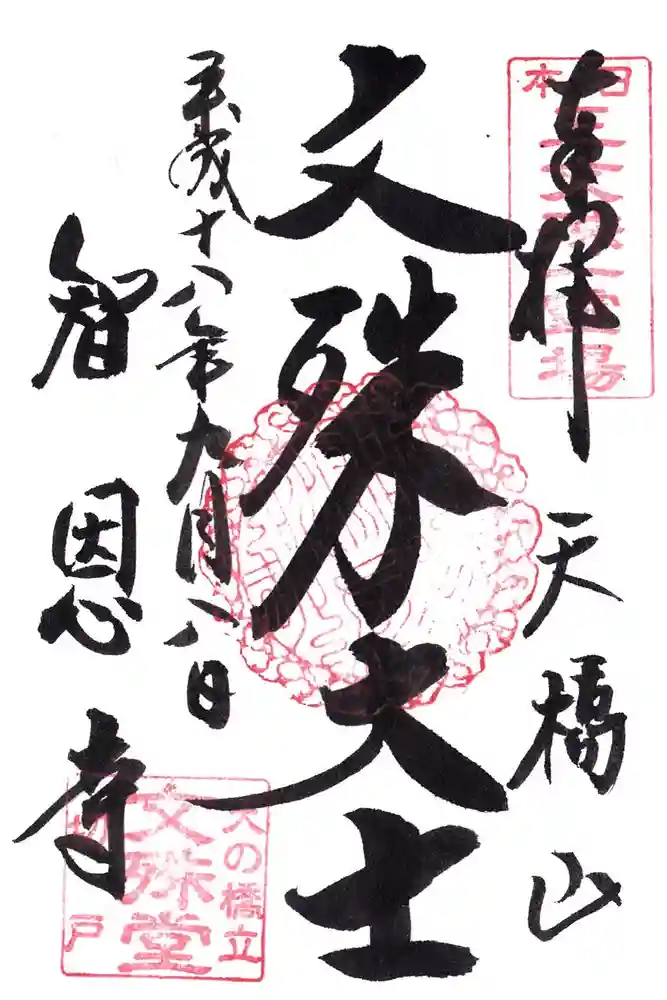 奉拝
天橋山
文殊大士
平成十八年九月八日
智恩寺
日本三文殊霊場
天の橋立
文殊堂
切戸